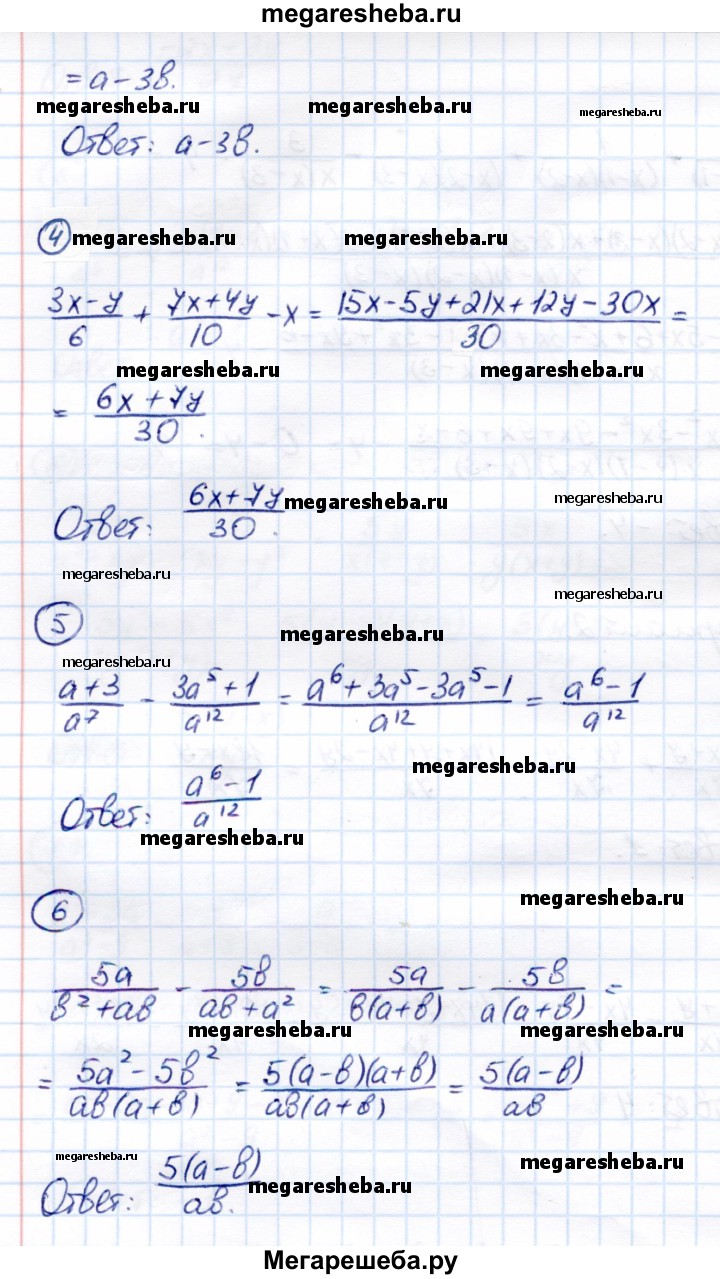 megaresheba.ru
= a – 3b.
megaresheba.ru megaresheba.ru megaresheba.ru
Ответ: a – 3b.
④ megaresheba.ru megaresheba.ru
(3x – y)/6 + (7x + 4y)/10 – x = (15x – 5y + 21x + 12y – 30x)/30 =
megaresheba.ru megaresheba.ru
= (6x + 7y)/30.
Ответ: (6x + 7y)/30. megaresheba.ru megaresheba.ru
megaresheba.ru megaresheba.ru
⑤
megaresheba.ru
megaresheba.ru
(a + 3)/a⁷ – (3a⁵ + 1)/a¹² = (a⁶ + 3a⁵ – 3a⁵ – 1)/a¹² = (a⁶ – 1)/a¹²
megaresheba.ru
Ответ: (a⁶ – 1)/a¹²
megaresheba.ru
megaresheba.ru
⑥
5a/(b² + ab) – 5b/(ab + a²) = 5a/(b(a + b)) – 5b/(a(a + b)) =
megaresheba.ru megaresheba.ru
= (5a² – 5b²)/(ab(a + b)) = (5(a – b)(a + b))/(ab(a + b)) = (5(a – b))/(ab)
megaresheba.ru megaresheba.ru
Ответ: (5(a – b))/(ab). megaresheba.ru
Мегарешеба.ру